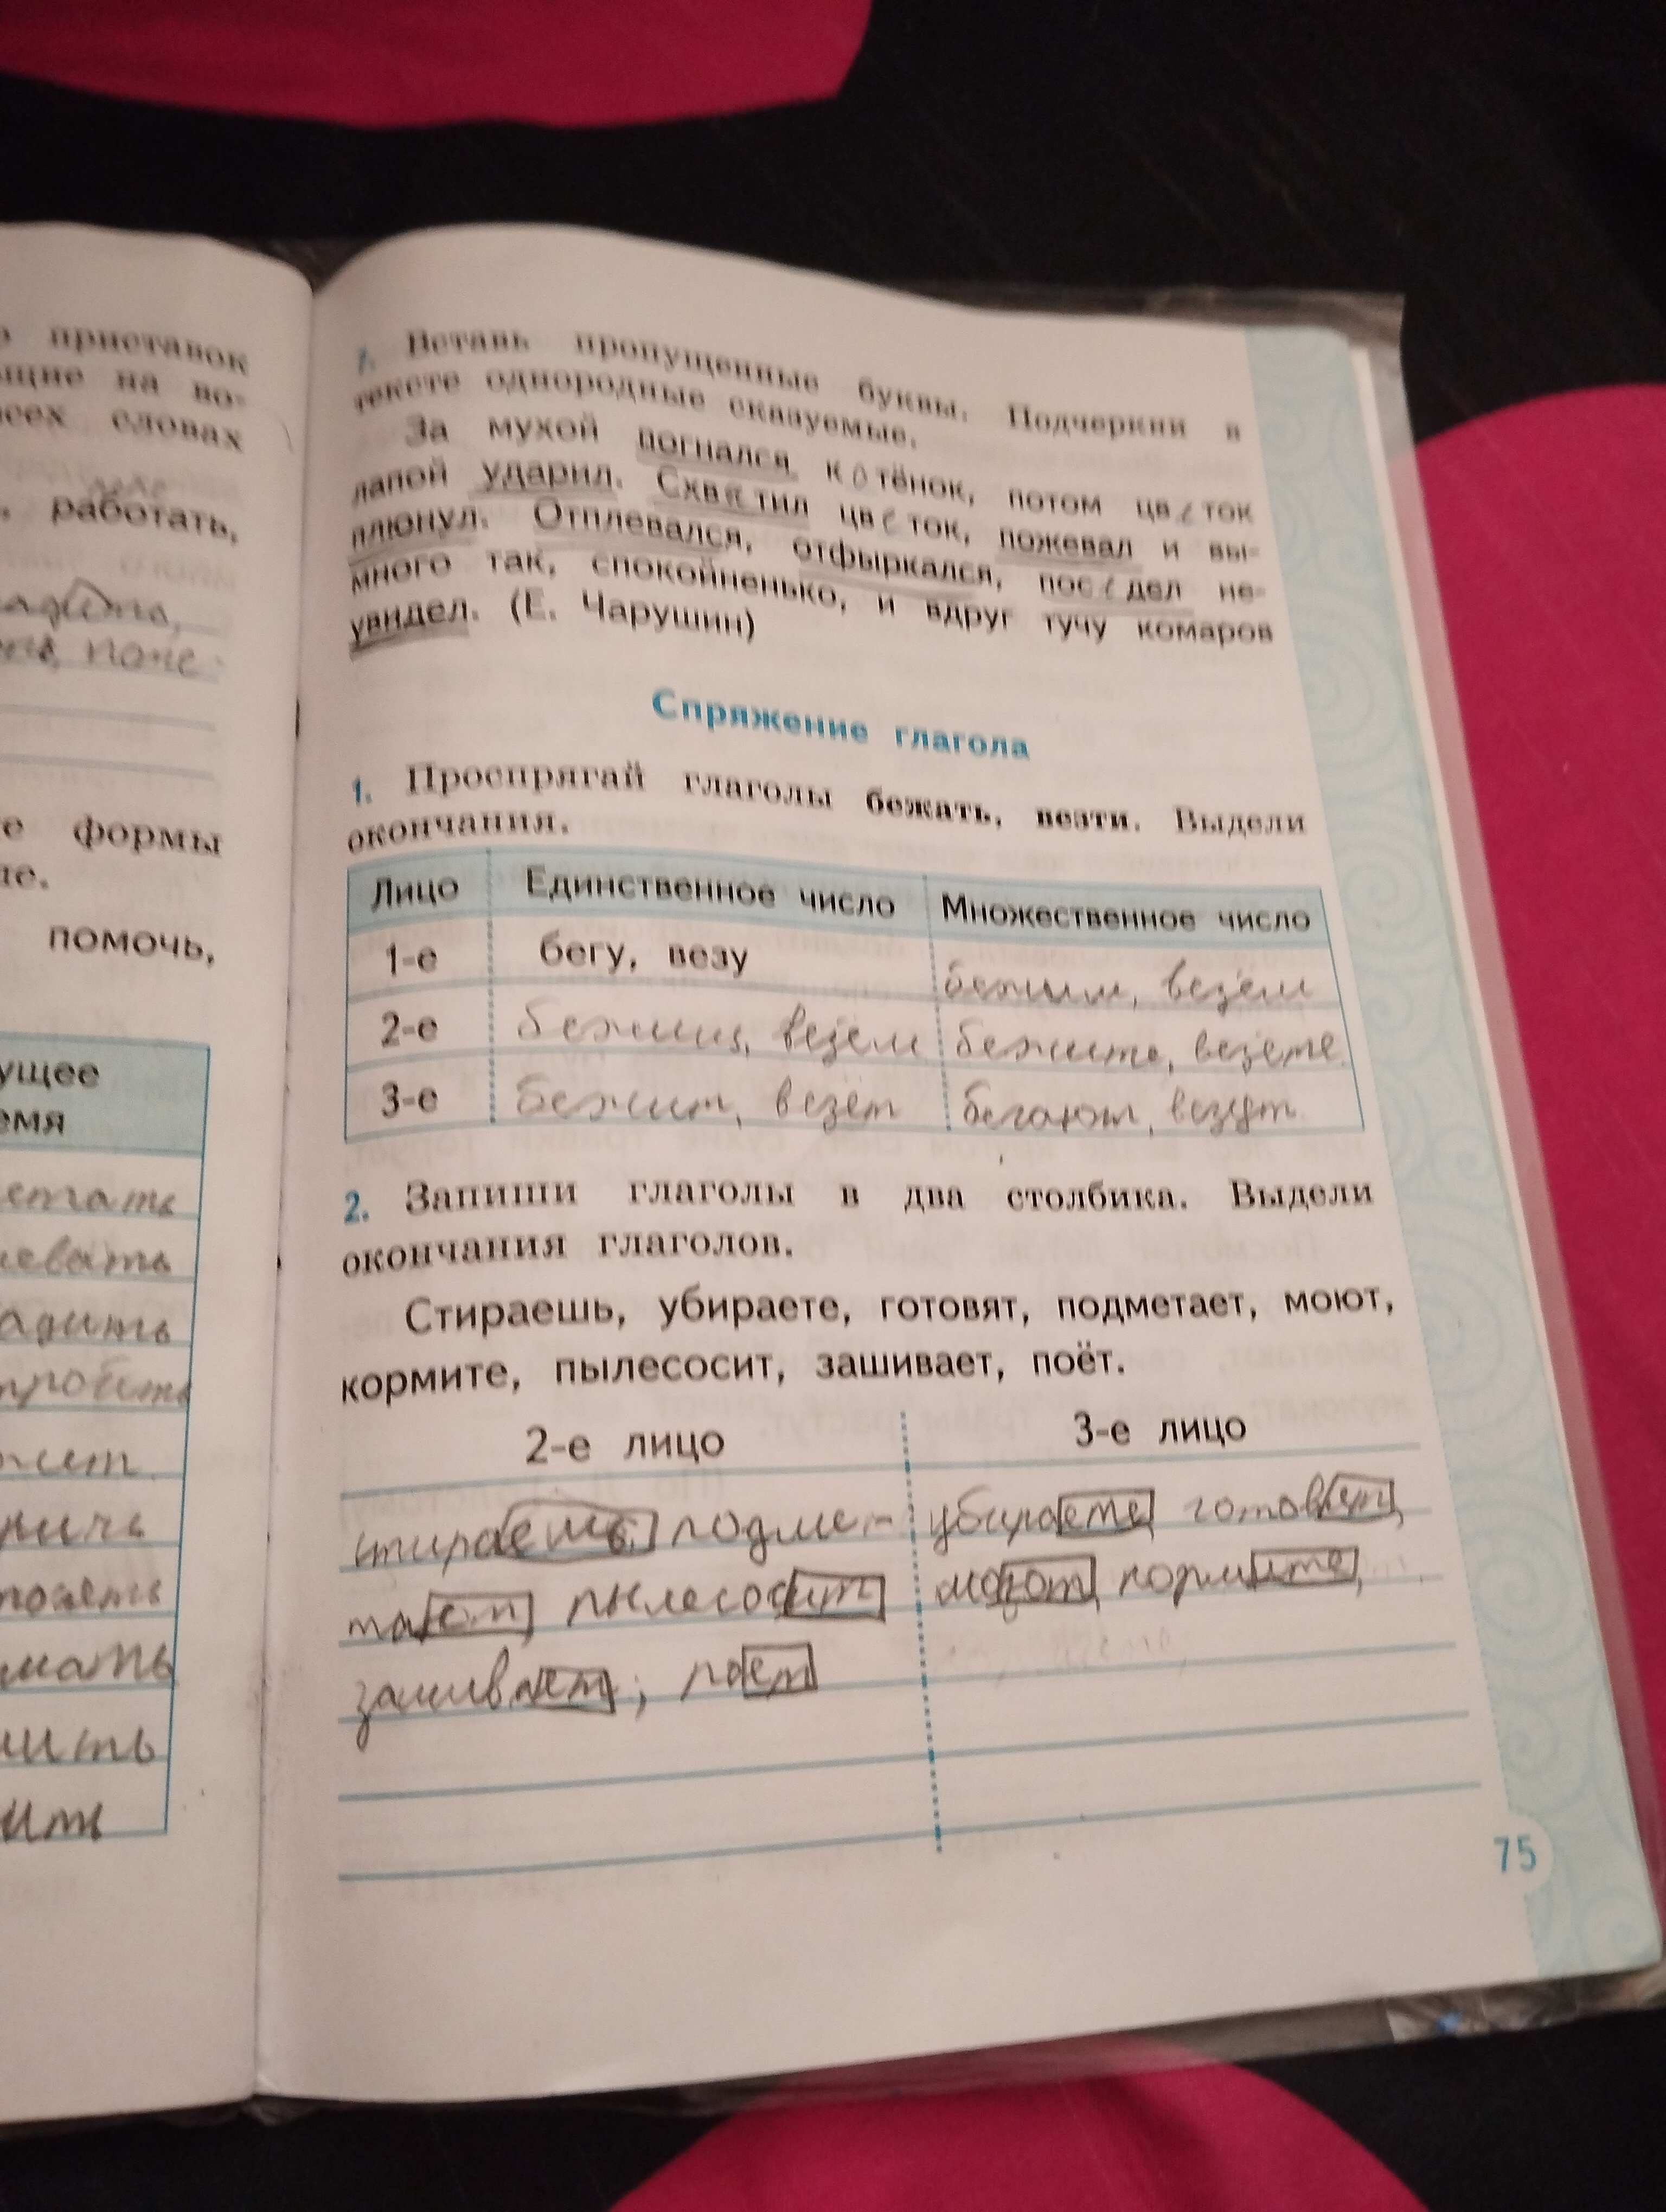 приставок
на во-
сех словах
работать,
поне-
формы
помочь,
ущее
емя
7. Вставь пропущенные буквы. Подчеркни в
тексте однородные сказуемые.
За мухой погнался котёнок, потом цветок
лапой ударил. Схватил цветок, пожевал и вы-
плюнул. Отплевался, отфыркался, посидел не-
много так, спокойненько, и вдруг тучу комаров
увидел. (Е. Чарушин)
Спряжение глагола
1. Проспрягай глаголы бежать, везти. Выдели
окончания.
Лицо Единственное число Множественное число
1-е бегу, везу бежим, везём
2-е бежишь, везем бежите, везете
3-е бежит, везёт бегают, везут
2. Запиши глаголы в два столбика. Выдели
окончания глаголов.
Стираешь, убираете, готовят, подметает, моют,
кормите, пылесосит, зашивает, поёт.
2-е лицо 3-е лицо
стираешь, подме- убираете, готовят,
тает, пылесосит моют, кормите,
зашивает; поет
75